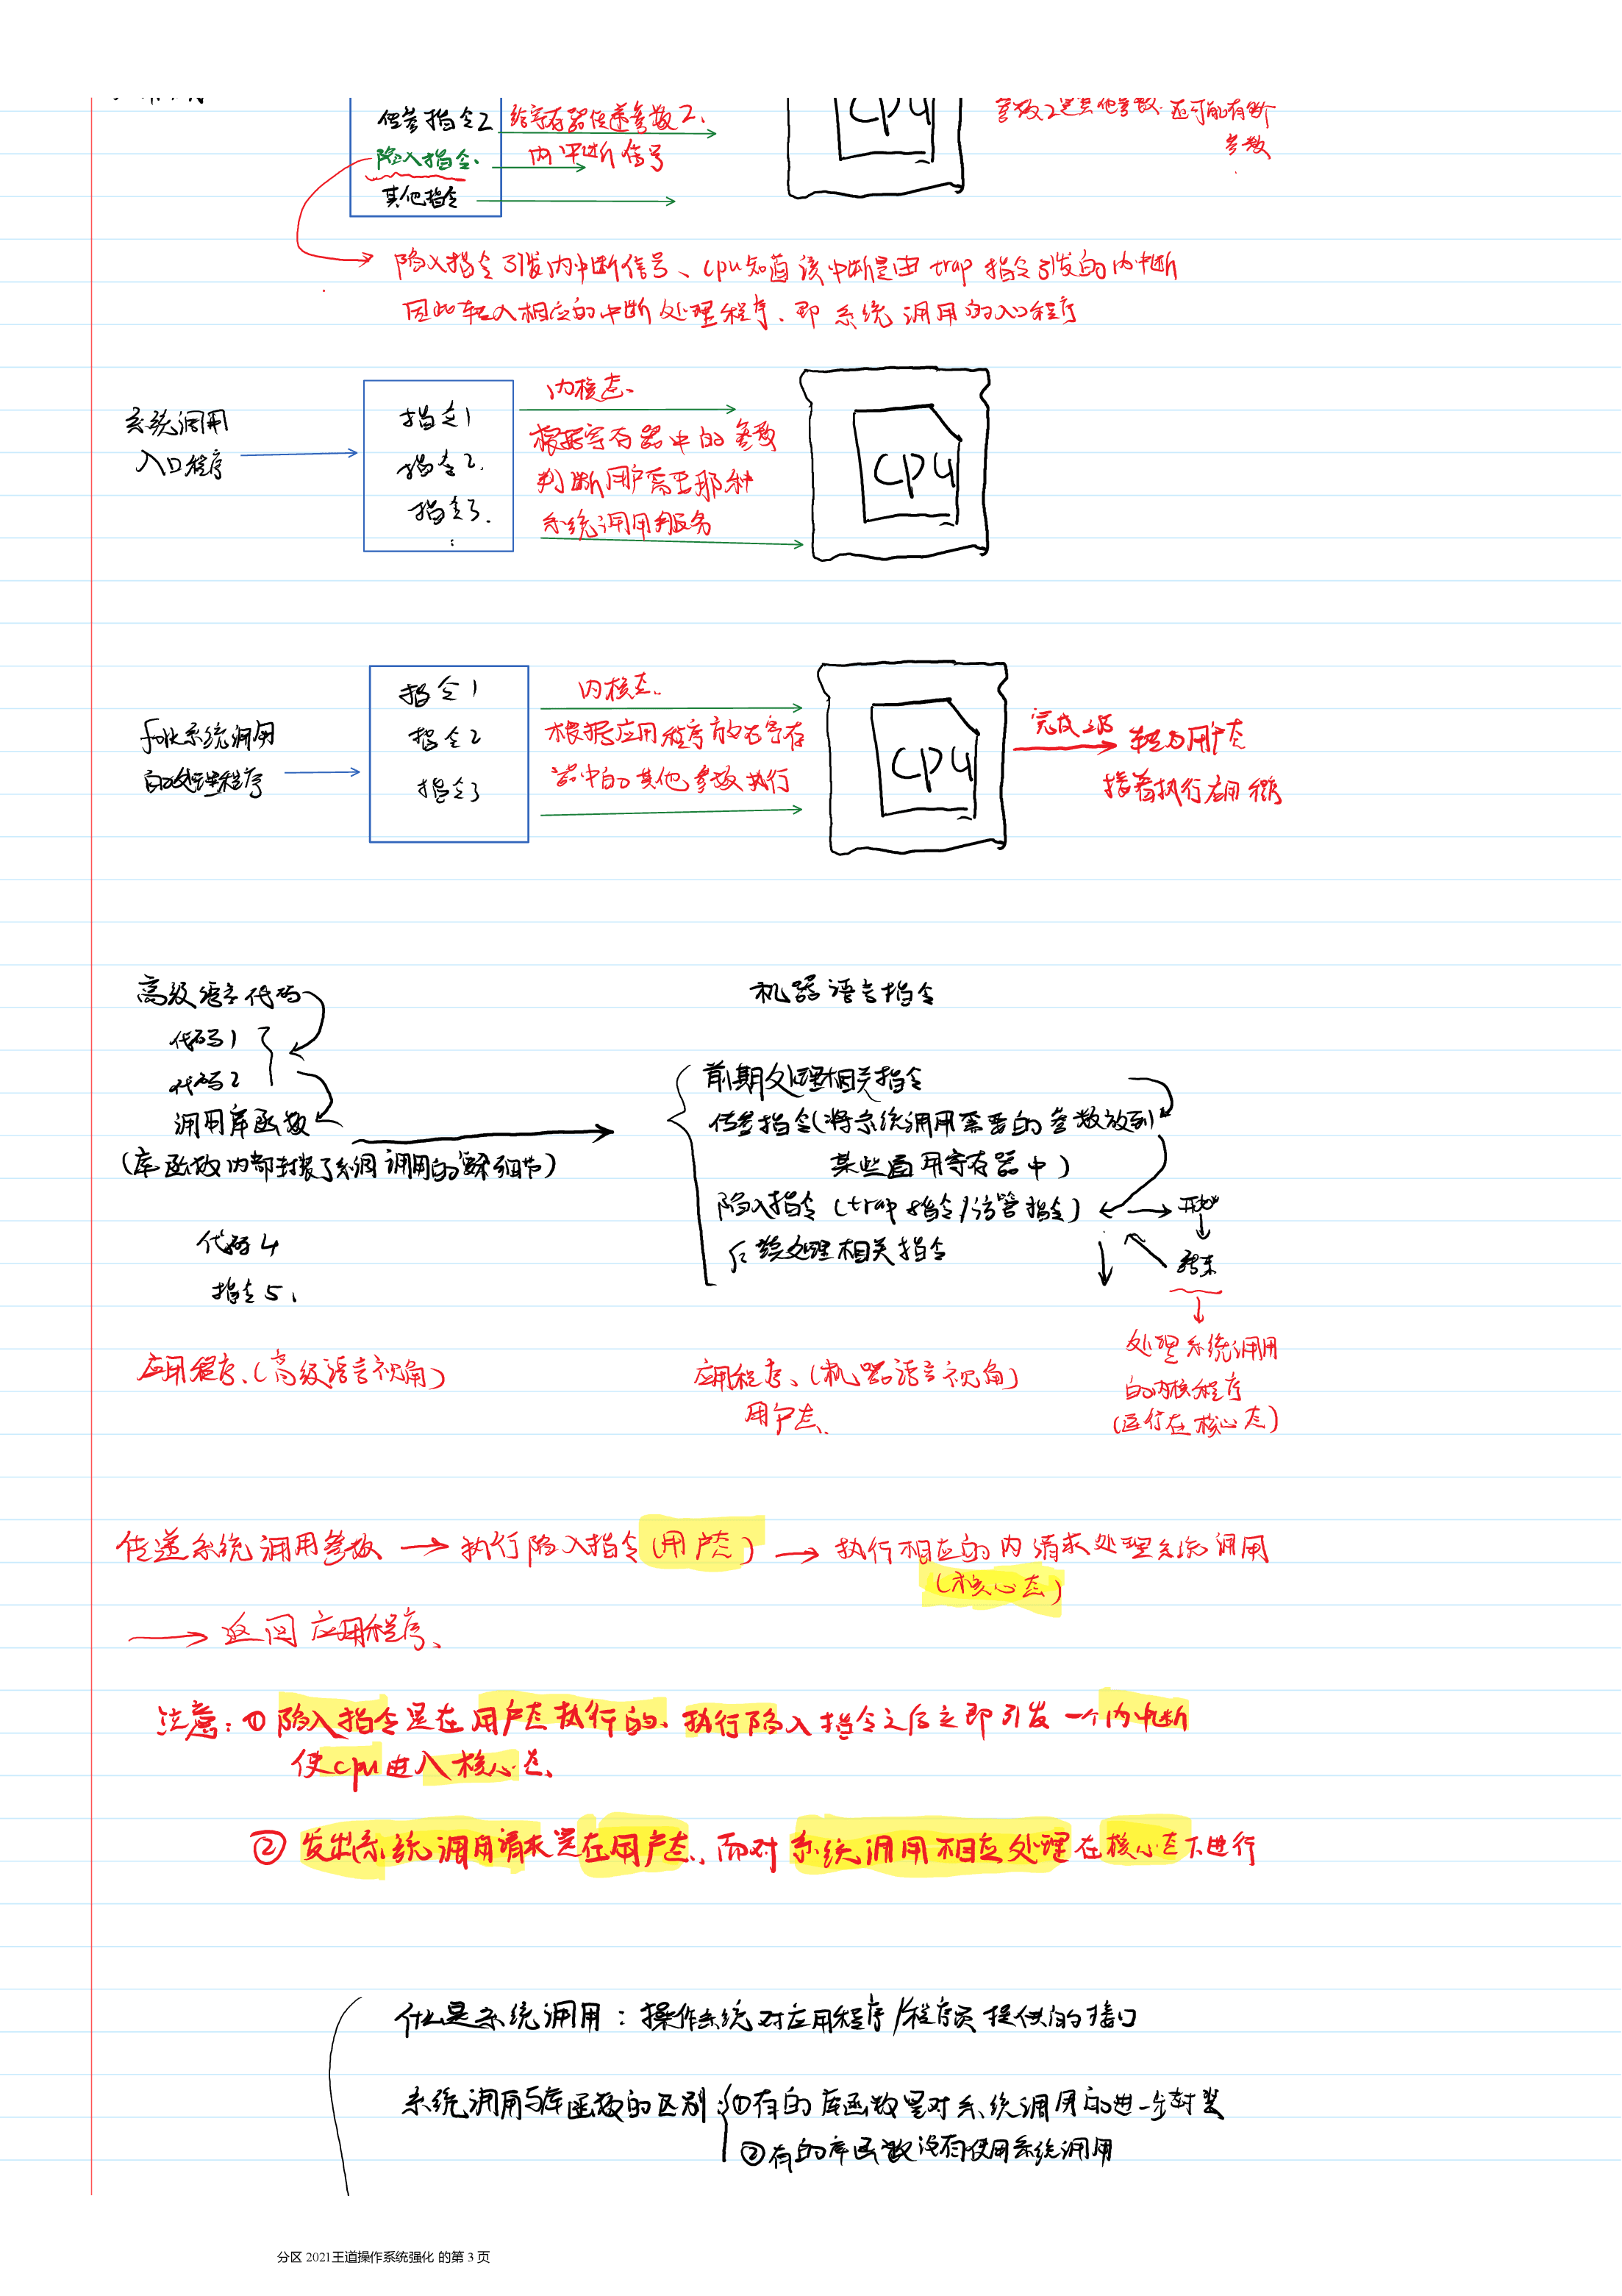 传参指令2 给寄存器传递参数2. cpu 参数2是其他参数.还可能有别
陷入指令. 内中断信号 参数
其他指令
陷入指令引发内中断信号、cpu知道该中断是由trap指令引发的内中断
因此转入相应的中断处理程序、即系统调用的入口程序
系统调用
入口程序
指令1
指令2.
指令3.
:
内核态.
根据寄存器中的参数
判断用户需要那种
系统调用服务
cpu
fork系统调用
的处理程序
指令1
指令2
指令3
内核态.
根据应用程序放在寄存
器中的其他参数执行
cpu
完成之后 转为用户态
接着执行应用程序
高级语言代码
代码1
代码2
调用库函数
(库函数内部封装了系统调用的繁琐细节)
代码4
指令5、
应用程序、(高级语言视角)
机器语言指令
前期处理相关指令
传参指令(将系统调用需要的参数放到
某些通用寄存器中)
陷入指令(trap指令/访管指令)
后续处理相关指令
开始
结束
应用程序、(机器语言视角)
用户态.
处理系统调用
的内核程序
(运行在核心态)
传递系统调用参数 → 执行陷入指令(用户态) → 执行相应的内请求处理系统调用
(核心态)
→ 返回应用程序、
注意:① 陷入指令是在用户态执行的、执行陷入指令之后立即引发一个内中断
使cpu进入核心态、
② 发出系统调用请求是在用户态、而对系统调用相应处理在核心态下进行
什么是系统调用:操作系统对应用程序/程序员提供的接口
系统调用与库函数的区别:①有的库函数是对系统调用的进一步封装
②有的库函数没有使用系统调用
分区 2021王道操作系统强化 的第 3 页